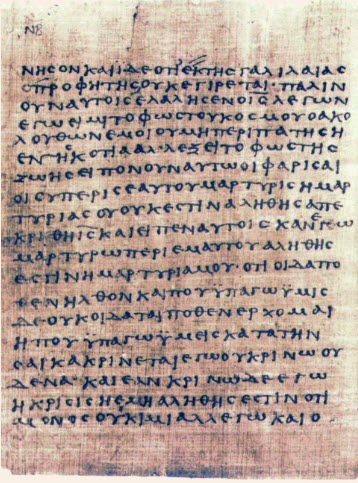 ΝΒ
ΝΗCΟΝ ΚΑΙ ΪΔΕ ΟΤΙ ΕΚ ΤΗC ΓΑΛΙΛΑΙΑC
Ο ΠΡΟΦΗΤΗC ΟΥΚ ΕΓΕΙΡΕΤΑΙ· ΠΑΛΙΝ
ΟΥΝ ΑΥΤΟΙC ΕΛΑΛΗCΕΝ Ο Ι̅C̅ ΛΕΓΩΝ
ΕΓΩ ΕΙΜΙ ΤΟ ΦΩC ΤΟΥ ΚΟCΜΟΥ Ο ΑΚΟ
ΛΟΥΘΩΝ ΕΜΟΙ ΟΥ ΜΗ ΠΕΡΙΠΑΤΗCΗ
ΕΝ ΤΗ CΚΟΤΙΑ ΑΛΛ ΕΞΕΙ ΤΟ ΦΩC ΤΗC
ΖΩΗC ΕΙΠΟΝ ΟΥΝ ΑΥΤΩ ΟΙ ΦΑΡΙCΑΙ
ΟΙ CΥ ΠΕΡΙ CΕΑΥΤΟΥ ΜΑΡΤΥΡΙC Η ΜΑΡ
ΤΥΡΙΑ CΟΥ ΟΥΚ ΕCΤΙΝ ΑΛΗΘΗC ΑΠΕ
ΚΡΙΘΗ Ι̅C̅ ΚΑΙ ΕΙΠΕΝ ΑΥΤΟΙC ΚΑΝ ΕΓΩ
ΜΑΡΤΥΡΩ ΠΕΡΙ ΕΜΑΥΤΟΥ ΑΛΗΘΗC
ΕCΤΙΝ Η ΜΑΡΤΥΡΙΑ ΜΟΥ· ΟΤΙ ΟΙΔΑ ΠΟ
ΘΕΝ ΗΛΘΟΝ ΚΑΙ ΠΟΥ ΫΠΑΓΩ ΫΜΙC
ΔΕ ΟΥΚ ΟΙΔΑΤΑΙ ΠΟΘΕΝ ΕΡΧΟΜΑΙ
Η ΠΟΥ ΫΠΑΓΩ ΫΜΕΙC ΚΑΤΑ ΤΗΝ
ΚΡΙΝΕΤΑΙ ΕΓΩ ΟΥ ΚΡΙΝΩ ΟΥ
ΔΕΝΑ· ΚΑΙ ΕΑΝ ΚΡΙΝΩ ΔΕ ΕΓΩ
Η ΚΡΙCΙC Η ΕΜΗ ΑΛΗΘΗC ΕCΤΙΝ ΟΤΙ
ΜΟΝΟC ΟΥΚ ΙΜΙ ΑΛΛ ΕΓΩ ΚΑΙ Ο